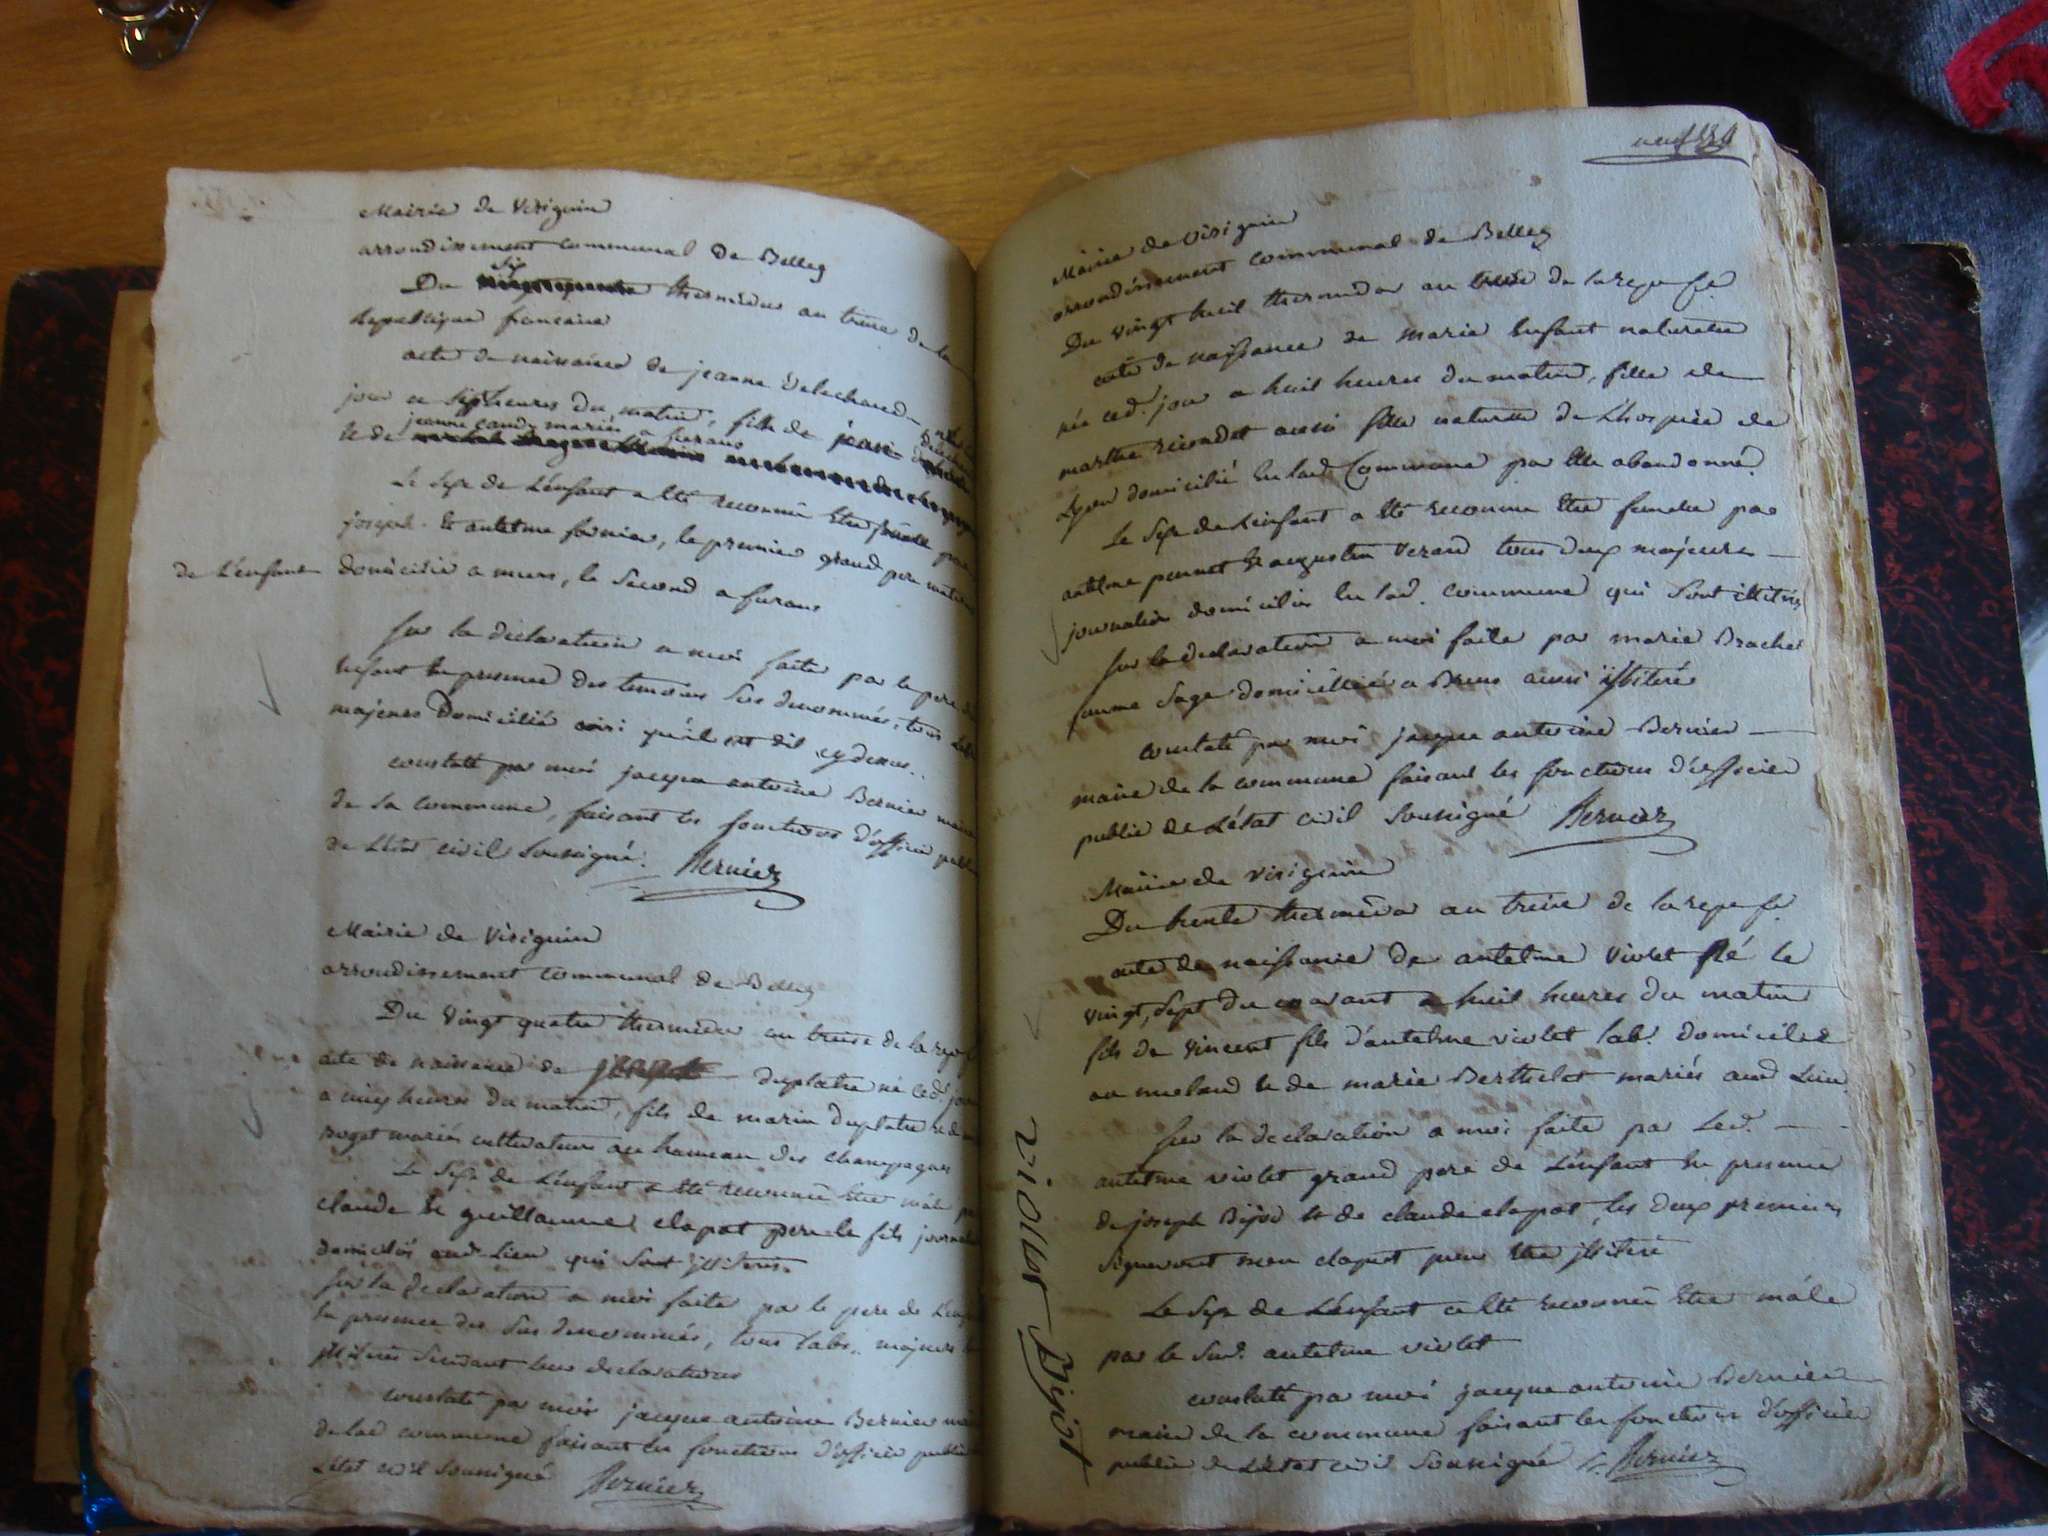 Mairie de Virignin
arrondissement communal de Belley
Du Six thermidor an treize de la
Republique francaise
acte de naissance de jeanne delachaud née
jour a sept heures du matin, fille de jean
jeanne mariés a furans
et de
Le Sexe de L'enfant a Eté reconnu Etre femelle par
joseph Et antelme fornier, le premier grand pere
de L'enfant domicilié a murs, le Second a furans
Sur la déclaration a moi faite par le pere de
Enfant En presence des temoins Sus denommés, tous
majeurs Domicilié ainsi qu'il est dit cy dessus.
constaté par moi jacque antoine Bernier maire
de la commune, faisant les fonctions d'officier public
de L'état civil Soussigné. Bernier
Mairie de Virignin
arrondissement communal de Belley
Du Vingt quatre thermidor an treize de la rep f
acte de naissance de duplatre né ced. jour
a heures du matin, fils de marin duplatre et de
roget mariés cultivateurs au hameau des champagnes
Le Sexe de L'enfant a Eté reconnu Etre mâle par
claude Et guillaume clapot pere Et fils
domiciliés aud. Lieu qui Sont illiterés.
Sur la declaration a moi faite par le pere de L'enfant
En presence des Sus denommés, tous labr. majeurs
illiterés Suivant leur declarations
constaté par moi jacque antoine Bernier maire
de lad commune faisant les fonctions d'officier public
L'état civil Soussigné Bernier
Mairie de Virignin
arrondissement communal de Belley
Du Vingt huit thermidor an treize de la rep. fr.
acte de naissance de marie Enfant naturelle
née ced. jour a huit heures du matin, fille de
marthe aussi fille naturelle de L'hospice de
Lyon domicilié En lad. Commune par Elle abandonné.
Le Sexe de L'enfant a Eté reconnu Etre femelle par
antelme pennet Et augustin Veraud tous deux majeurs
journalier domiciliés En lad. commune qui Sont illiterés
Sur la declaration a moi faite par marie Brachet
famme Sage domiciliée a Brens aussi illiteré
constaté par moi jacque antoine Bernier
maire de la commune faisant les fonctions d'officier
public de L'état civil Soussigné Bernier
Mairie de Virignin
Du trente thermidor an treize de la rep. fr.
acte de naissance de antelme violet Né le
vingt, Sept du courant a huit heures du matin
fils de Vincent fils d'antelme violet lab. domicilié
au Et de marie Berthelet mariés aud Lieu
Sur la declaration a moi faite par Led.
antelme violet grand pere de L'enfant En presence
de joseph Bijot Et de claude clapot, les deux premiers
Signeront non clapot pour Etre illiteré
Le Sexe de L'enfant a Eté reconnu Etre mâle
par le Sud. antelme violet
constaté par moi jacque antoine Bernier
maire de la commune faisant les fonctions d'officier
public de L'état civil Soussigné Bernier
violet Bijot